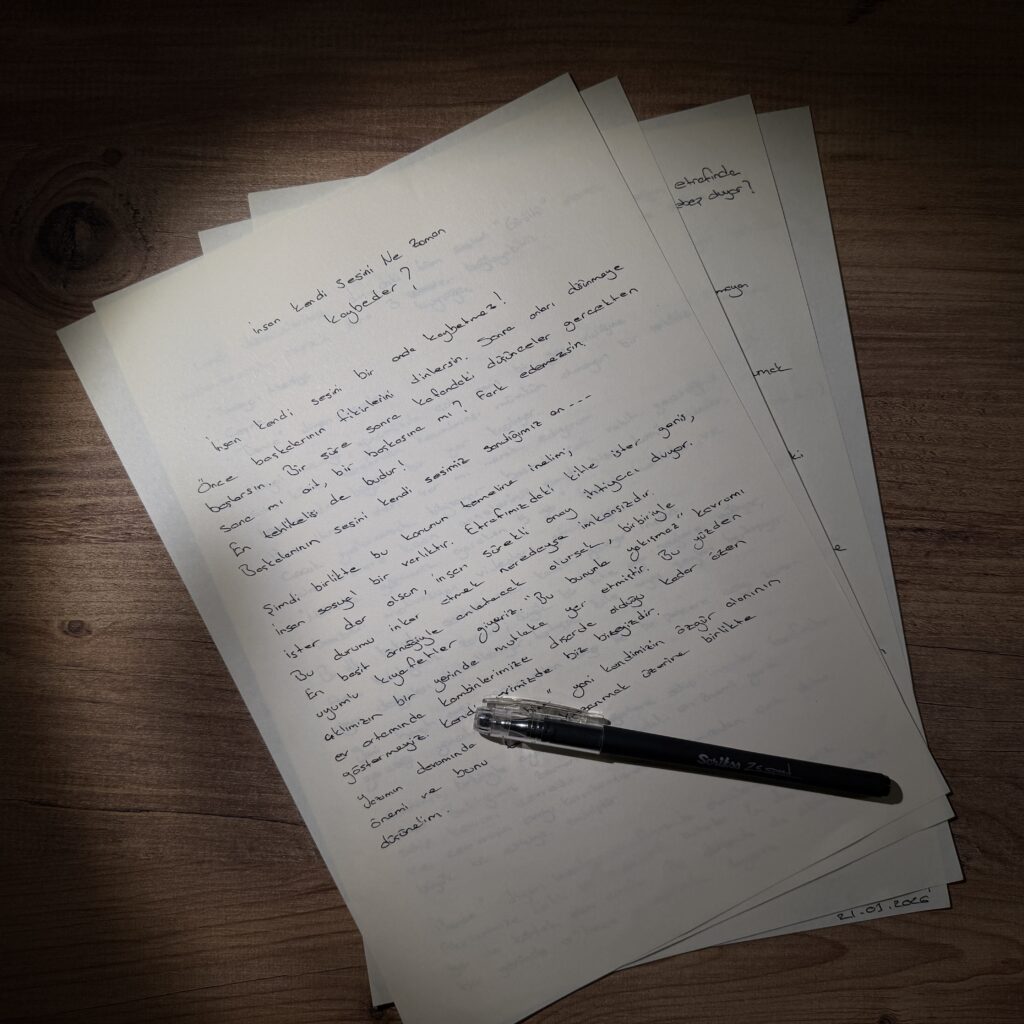 İnsan Kendi Sesini Ne Zaman
Kaybeder?
İnsan kendi sesini bir anda kaybetmez!
Önce başkalarının fikirlerini dinlersin. Sonra onları düşünmeye
başlarsın. Bir süre sonra kafandaki düşünceler gerçekten
sana mı ait, bir başkasına mı? Fark edemezsin.
En tehlikelisi de budur!
Başkalarının sesini kendi sesimiz sandığımız an ---
Şimdi birlikte bu konunun temeline inelim;
İnsan sosyal bir varlıktır. Etrafımızdaki kitle ister geniş,
ister dar olsun, insan sürekli onay ihtiyacı duyuyor.
Bu durumu inkar etmek neredeyse imkansızdır.
En basit örneğiyle anlatacak olursak, birbiriyle
uyumlu kıyafetler giyeriz. "Bu bununla yakışmaz" kavramı
aklımızın bir yerinde mutlaka yer etmiştir. Bu yüzden
ev ortamında kombinlerimize dışarıda olduğu kadar özen
göstermeyiz. biz bizeyizdir.
Yazımın devamında " yani kendimizin özgür alanının
önemi ve bunu kazanmak üzerine birlikte
düşünelim.
etrafında
duyar?
21.03.2026